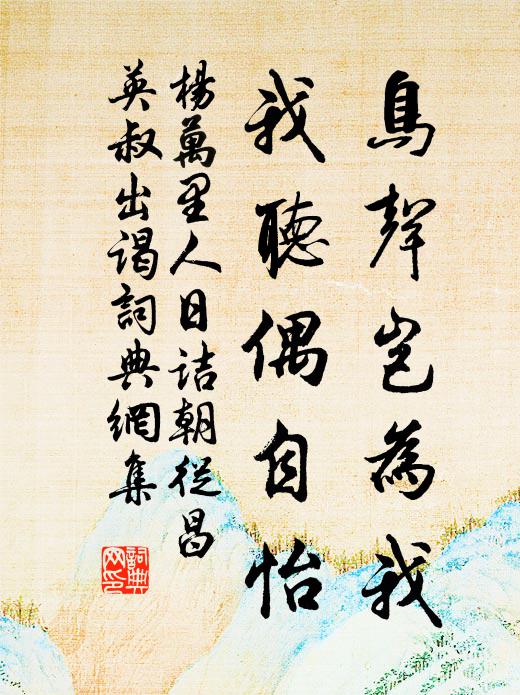 鳥聲豈為我
我聽偶自怡
楊萬里人日詰朝從昌
英叔出謁詞典網集
詞典
网印